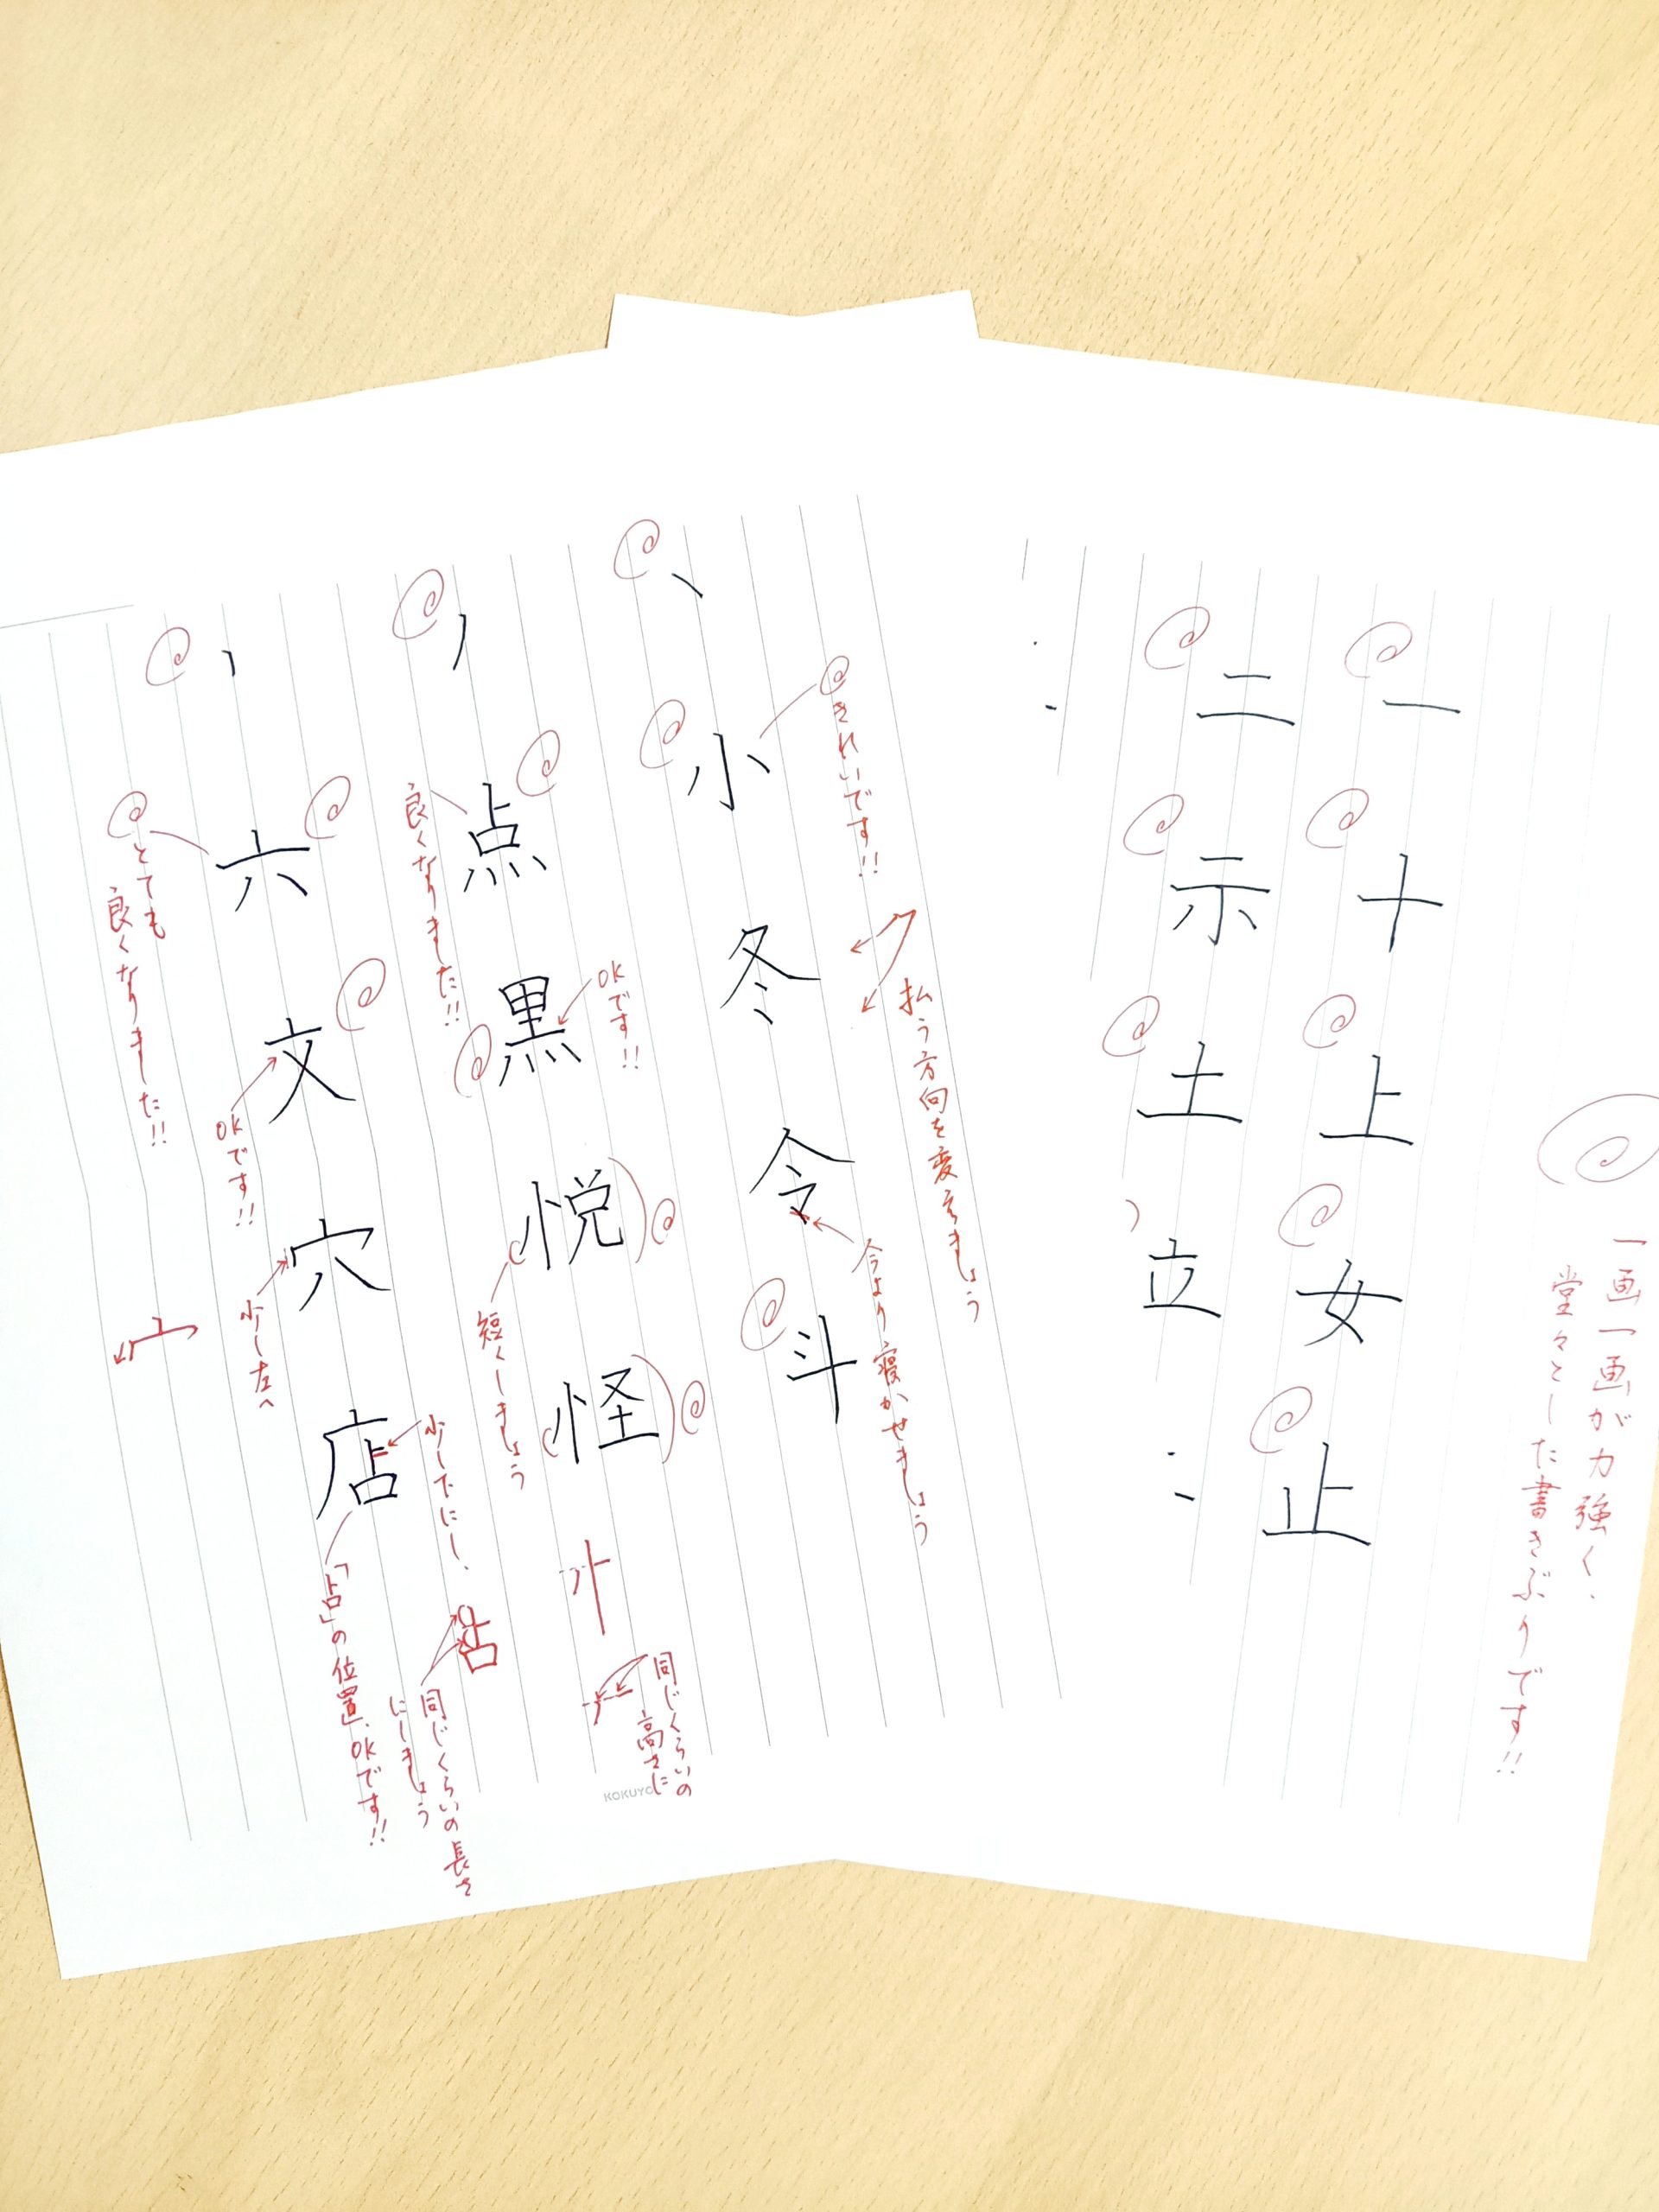 一画一画が力強く、
堂々とした書きぶりです!!
一
十
上
女
止
二
示
土
立
、
小
冬
令
斗
きれいです!!
払う方向を変えましょう
今より寝かせましょう
点
黒
悦
怪
良くなりました!!
OKです!!
短くしましょう
同じくらいの
高さに
六
文
穴
店
とても
良くなりました!!
OKです!!
少し左へ
少し下にし、
占
同じくらいの長さ
にしましょう
「占」の位置、OKです!!
KOKUYO